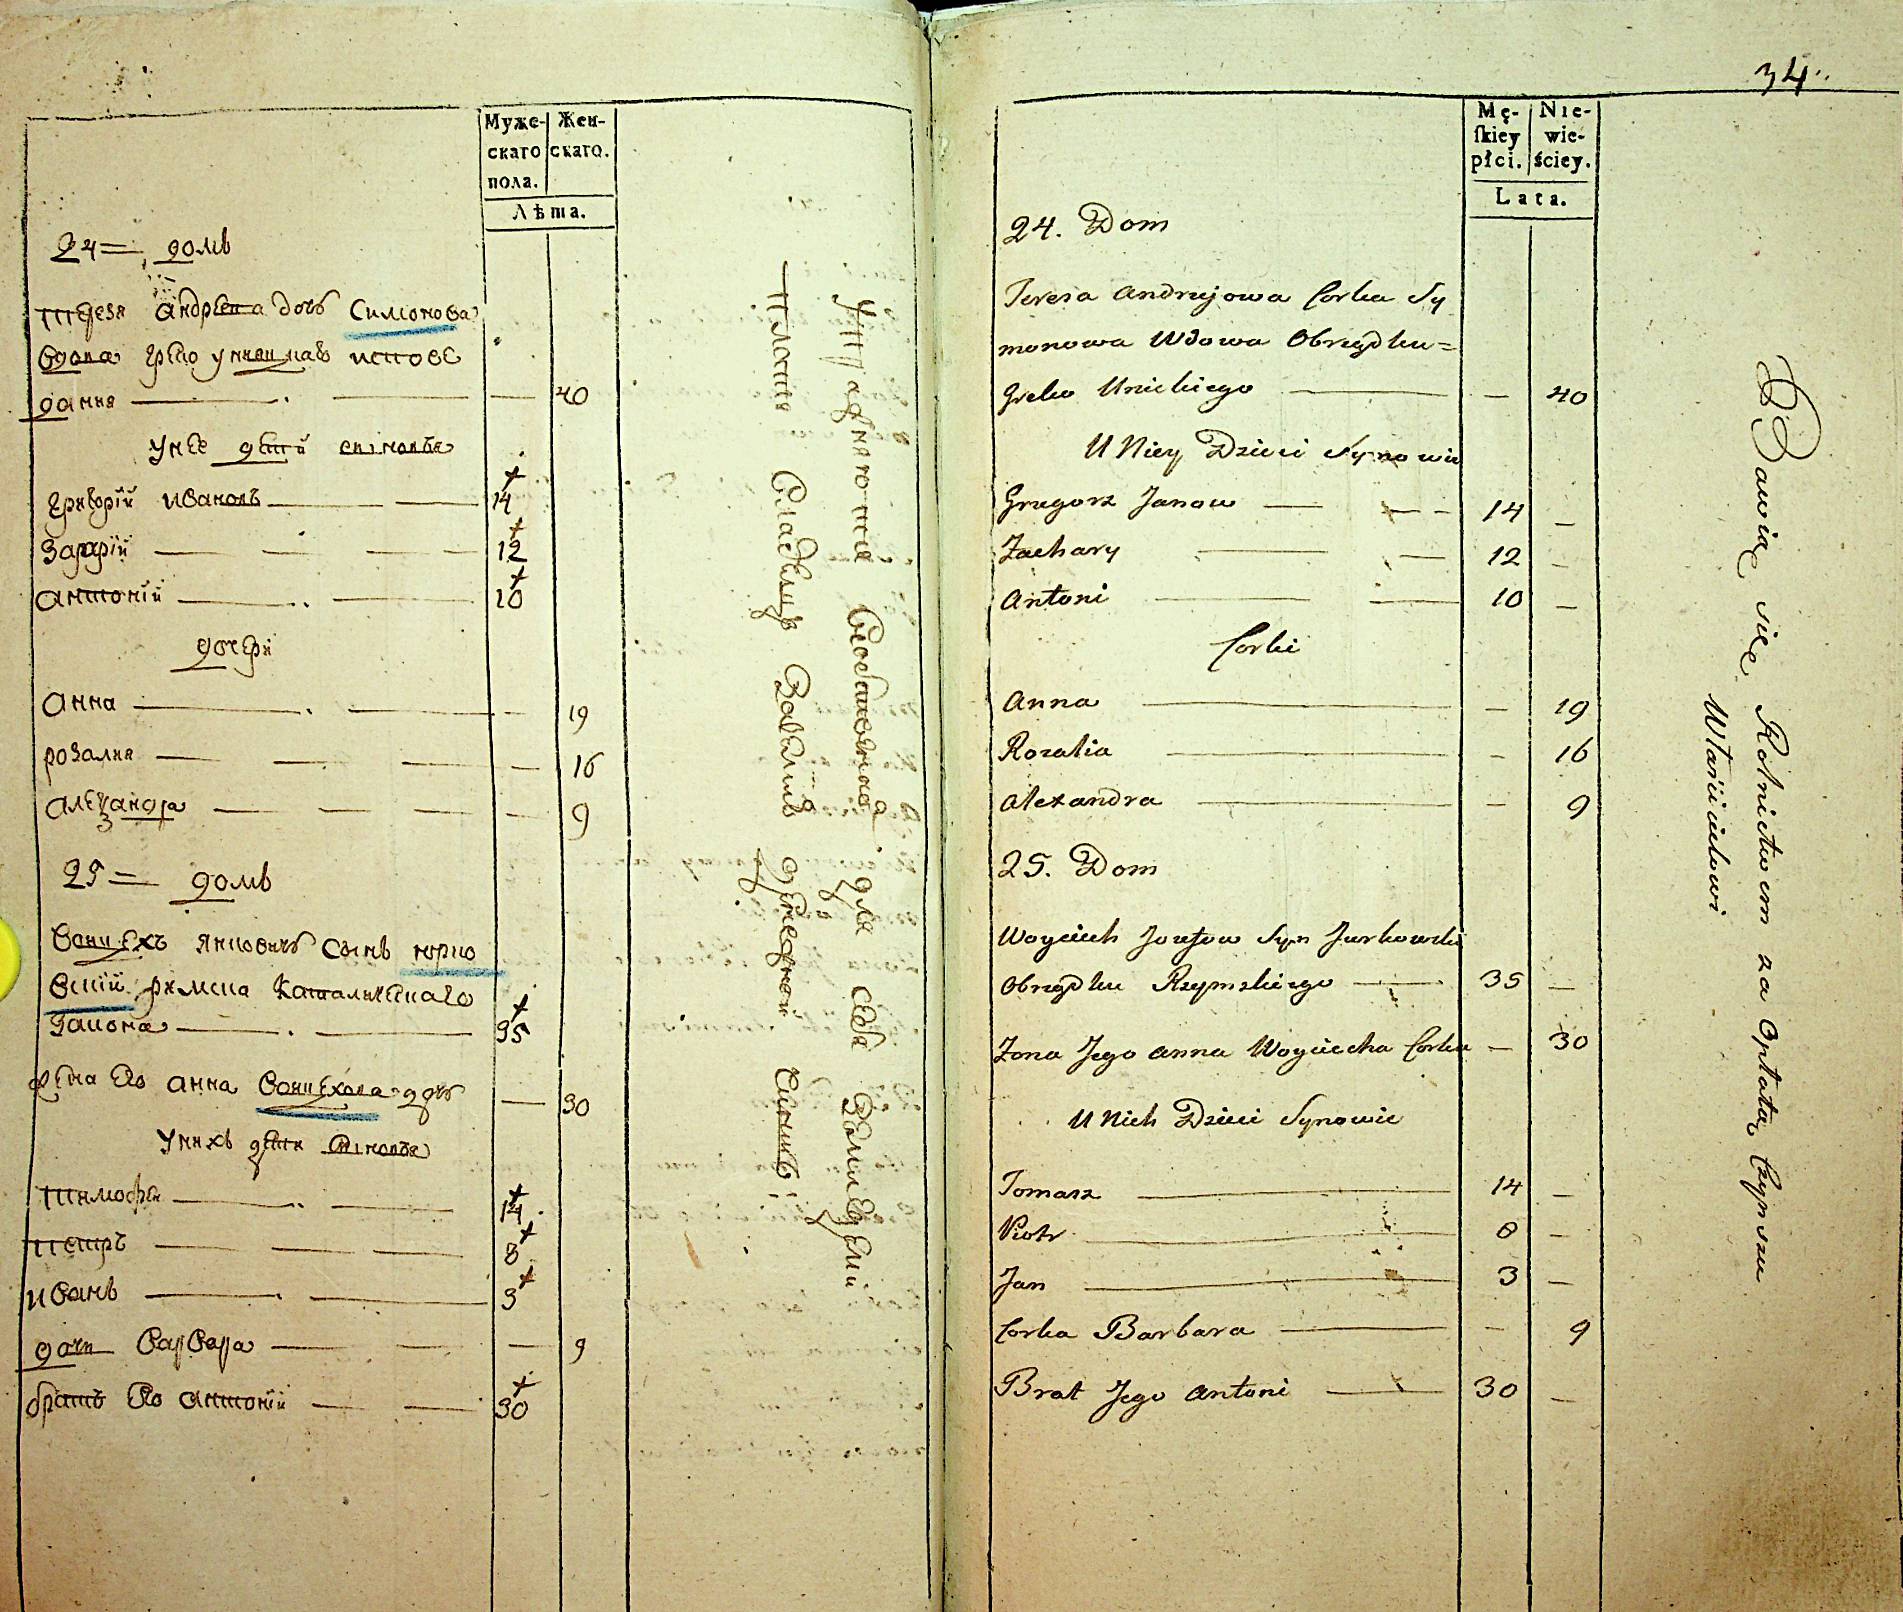 Муже-
скаго
пола.
Жен-
скаго.
Лѣта.
24 = домъ
тереза андреева дочь Симонова
вдова греко унеицкаго испове
дания 40
у нее детй сыновья
григорій ивановъ 14
захарій 12
антоній 10
дочери
анна 19
розалия 16
александра 9
25 = домъ
войцехъ сынъ юрко
вскій римска католическаго
закона 35
жена его анна войцехова дочь 30
у нихъ дети сыновья
тимофей 14
петръ 8
иванъ 3
дочь варвара 9
братъ его антоній 30
упражняются собственно для себя земледелій
платя владельцу денежной чиншъ
34
Mę-
ſkiey
płci.
Nie-
wie-
ściey.
Lata.
24. Dom
Teresa Andrzejowa Corka Sy
monowa Wdowa Obrządku=
Greko Unickiego — 40
U Niey Dzieci Synowie
Grzegorz Janow 14 —
Zachary 12 —
Antoni 10 —
Corki
Anna — 19
Rozalia — 16
Alexandra — 9
25. Dom
Woyciech Jozefow Syn Jurkowski
Obrządku Rzymskiego 35 —
Zona Jego Anna Woyciecha Corka — 30
U Nich Dzieci Synowie
Tomasz 14 —
Piotr 8 —
Jan 3 —
Corka Barbara — 9
Brat Jego Antoni 30 —
Bawią się Rolnictwem za Opłatą Czynszu
Właścicielowi